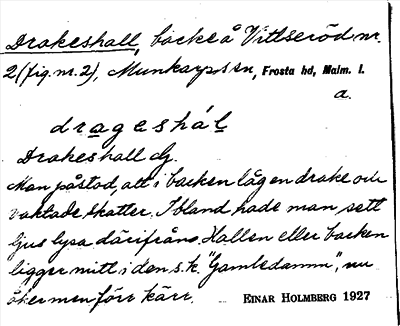 Drakeshall, backe å Vittseröd nr.
2 (fig. nr. 2), Munkarps sn, Frosta hd, Malm. l.
a.
drageshál
Drakeshall dj.
Man påstod, att i backen låg en drake och
vaktade skatter. Ibland hade man sett
ljus lysa därifrån. Hallen eller backen
ligger mitt i den s.k. "Gamledamm", nu
åker men förr kärr. EINAR HOLMBERG 1927